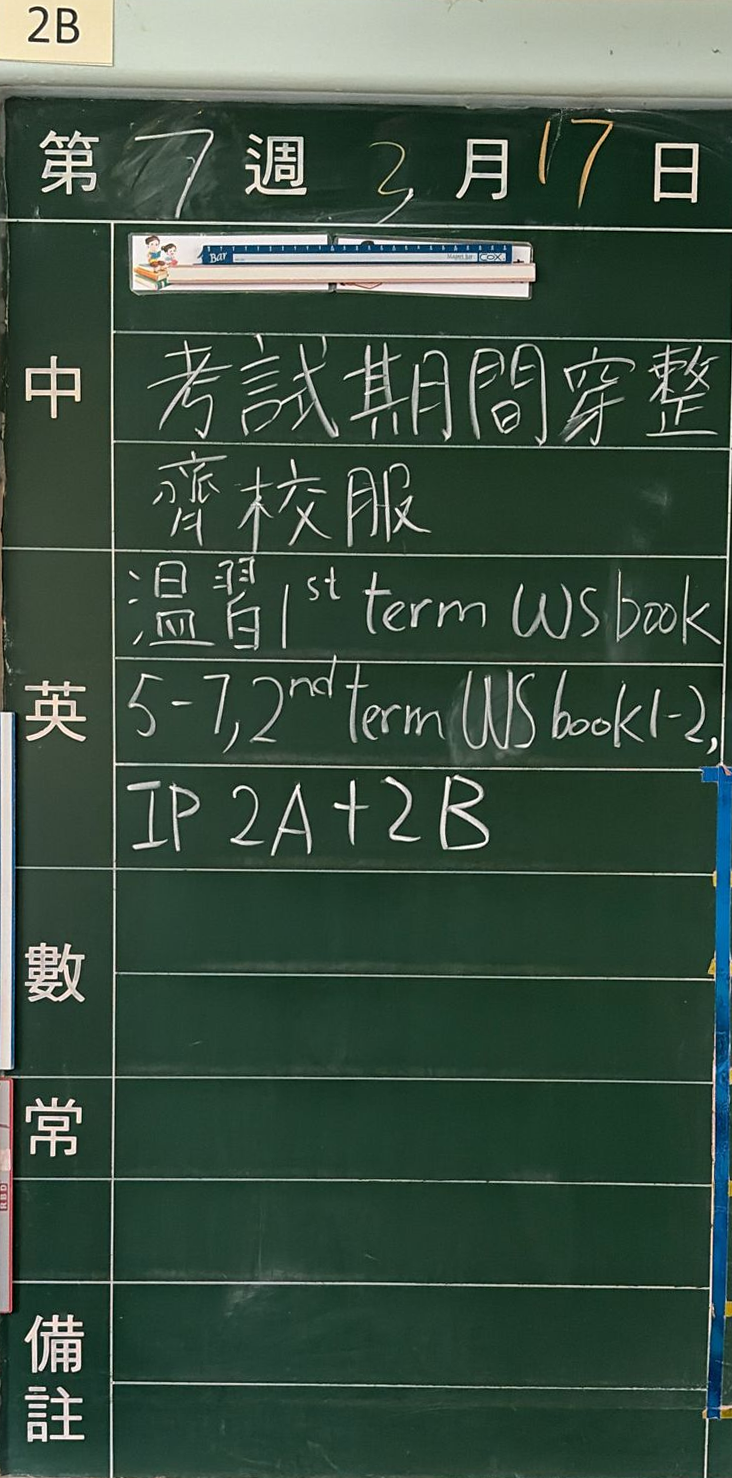 2B
第 7 週 3 月 17 日
Bar COX
中
考試期間穿整
齊校服
英
溫習 1st term WS book
5-7, 2nd term WS book 1-2,
IP 2A+2B
數
常
RBD
備
註